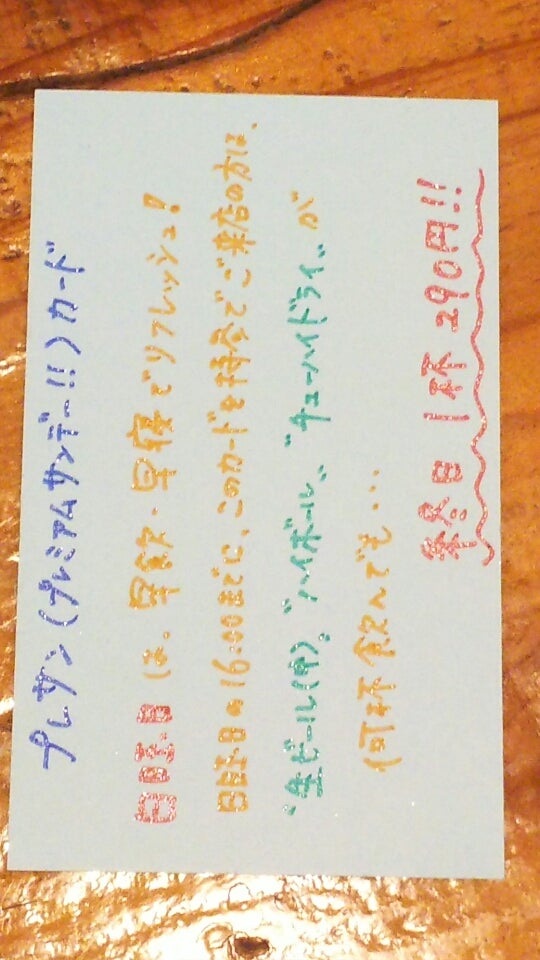 プレサン(プレミアムサンデー!!)カード
日曜日は、早飲・早寝でリフレッシュ!
日曜日の16:00までに、このカードを持参でご来店の方は、
"生ビール(中)"、"ハイボール"、"チューハイドライ"が
何杯飲んでも・・・
終日 1杯 290円!!